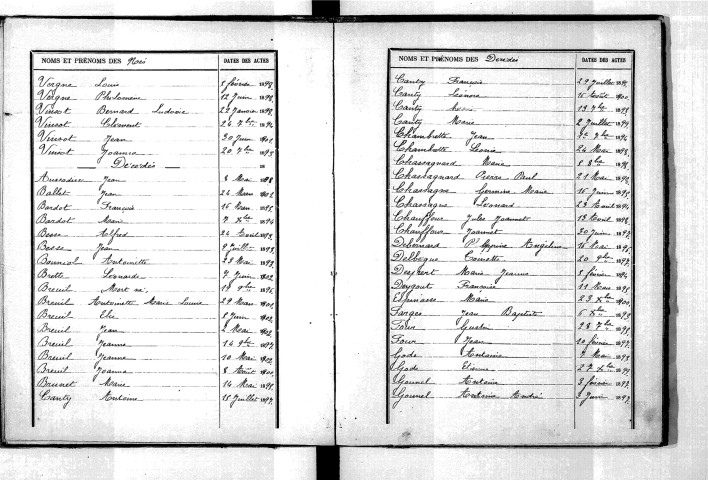 NOMS ET PRÉNOMS DES Nés DATES DES ACTES
Vergne Louis 5 février 1899
Vergne Philomène 12 Juin 1898
Vincot Bernard Ludovic 22 Janvier 1899
Vincot Clément 24 7bre
Vincot Jean 30 Juin 1901
Vincot Joanna 20 7bre 1895
Décédés
Jean 8 Mai 1898
Ballet Jean 24 Mars 1902
Bardot François 16 Mars 1895
Bardot Marie 7 Xbre 1894
Besse Alfred 24 Avril
Besse Jean 9 Juillet
Antoinette 28 Mai 1899
Brette Léonarde 7 Juin 1902
Breuil Mort né 19 9bre 1896
Breuil Antoinette Marie Louise 29 Mars 1901
Breuil Elie 8 Juin 1902
Breuil Jean 2 Mai 1902
Breuil Jeanne 14 9bre 1897
Breuil Jeanne 10 Mai 1902
Breuil Joanna 8 Août 1901
Brunet Marie 14 Mai 1895
Canty Antoine 15 Juillet 1897
NOMS ET PRÉNOMS DES Décédés DATES DES ACTES
Canty François 29 Juillet
Canty Léonora 15 Août 1900
Canty 13 7bre 1898
Canty Marie 2 Juillet 1899
Chambette Jean 7bre 1896
Chambette Léonie 24 Mai 1898
Chassagnard Marie 8 8bre 1898
Chassagnard Pierre Paul 21 Mai 1899
Chassagne Germaine Marie 16 Juin 1895
Chassagne Léonard 23 Avril 1896
Chauffour Jules Joannet 13 Avril 1898
Chauffour Joannet 30 Juin 1897
Debernard Angeline 16 Mai 1895
Delbegue Toinette 20 9bre 1897
Marie Jeanne 5 février 1896
Deygout Françoise 11 Mars 1901
Espinasse Marie 23 Xbre 1900
Farges Jean Baptiste 6 Xbre 1893
Four 28 7bre 1899
Four Jean 20 février 1897
Gode Antoine 9 Mai 1899
Gode Etienne 27 Xbre
Gounel Antoine 3 février 1899
Gounel Antoine André 3 Juin 1897